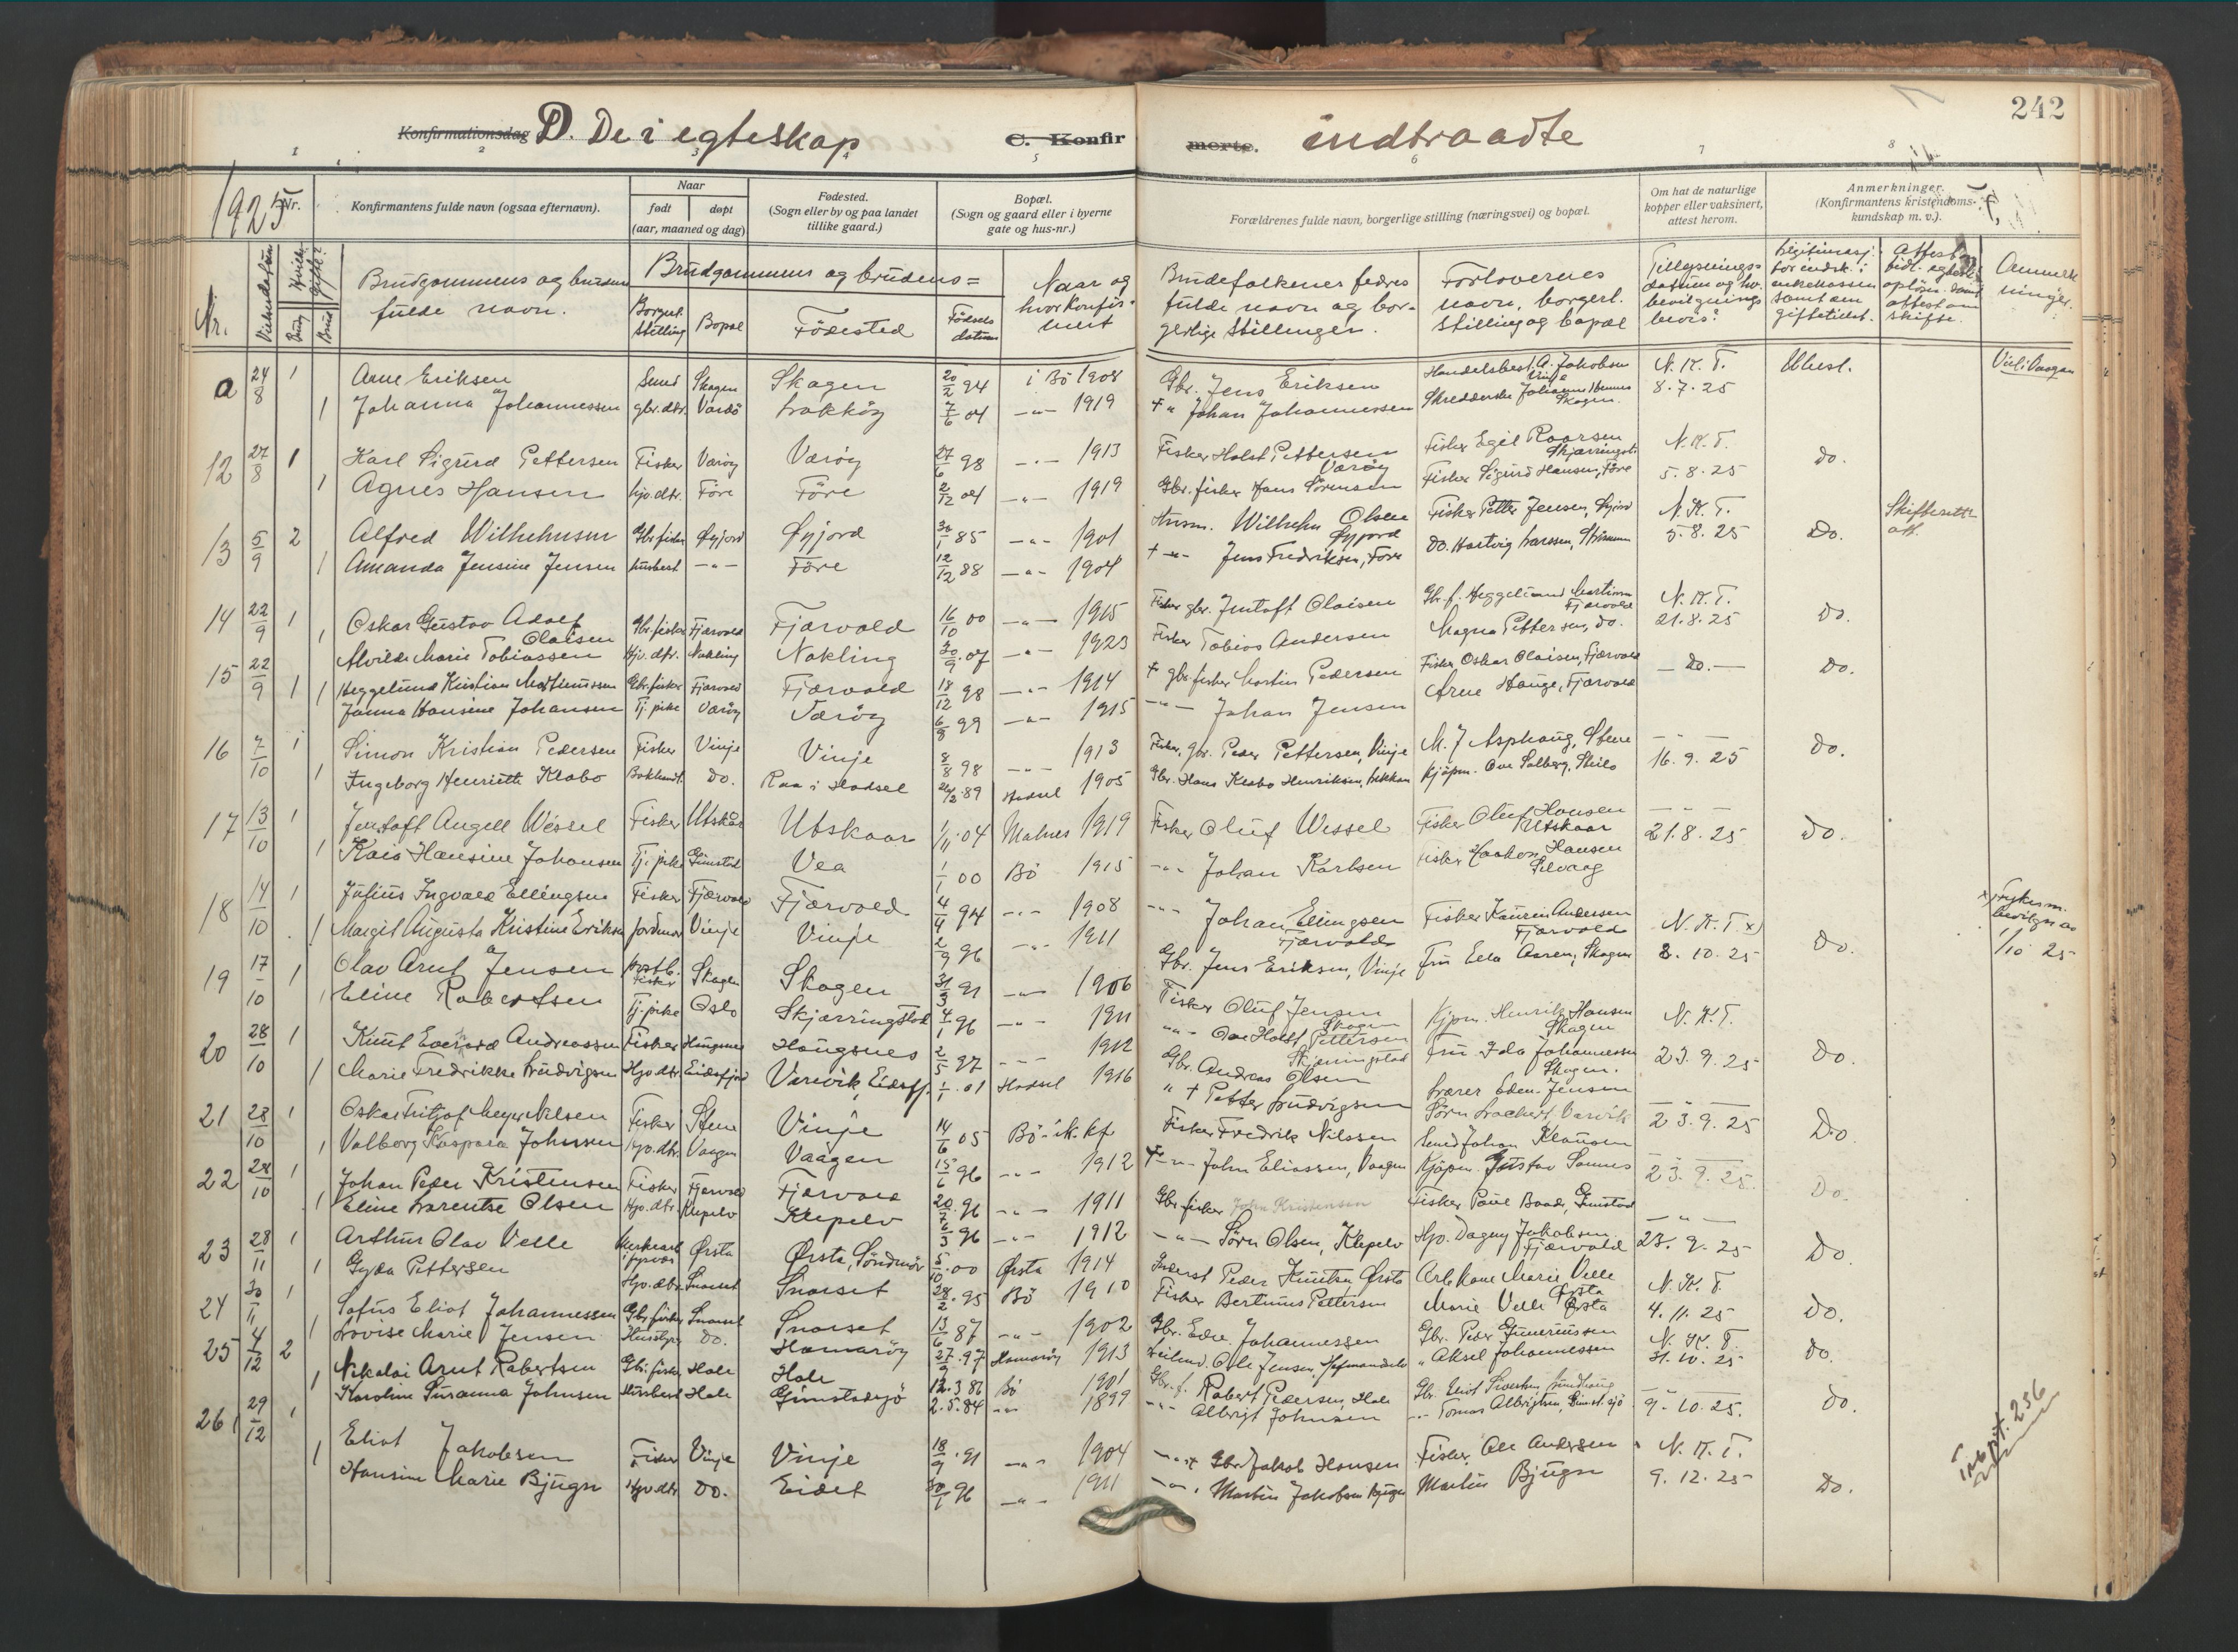 242
Konfirmationsdag D. De i egteskap C. Konfirmerte. indtraadte
1 2 3 4 5 6 7 8
1925
Nr.
Konfirmantens fulde navn (ogsaa efternavn).
Naar
født døpt
(aar, maaned og dag)
Fødested.
(Sogn eller by og paa landet
tillike gaard.)
Bopæl.
(Sogn og gaard eller i byerne
gate og hus-nr.)
Forældrenes fulde navn, borgerlige stilling (næringsvei) og bopæl.
Om hat de naturlige
kopper eller vaksinert,
attest herom.
Anmerkninger.
(Konfirmantens kristendoms-
kundskap m. v.).
Nr.
Vielsesdatum
Brudgommens og brudens
fulde navn.
Brudgommens og brudens =
Borgerl.
Stilling
Bopæl
Födested
Födsels
datum
Naar og
hvor konfir-
mert
Brudefolkenes fedres
fulde navn og bor-
gerlige stillinger.
Forlovernes
navn, borgerl.
stilling og bopæl
Tillysnings-
datum og ev.
bevilgnings
bevis?
Anmerk
ninger.
a 24/8 1 Arne Eriksen Smed Skagen Skagen 20/2 94 i Bö 1908 Gbr. Jens Eriksen Handelsbest. A. Jakobsen Vinje N. K. T. Ubest. Viet i Vaagan
1 Johanna Johannessen gbr.dtr. Vardö 7/6 04 -"- 1919 + " Johan Johannessen Skagen 8.7.25
12 27/8 1 Karl Sigurd Pettersen Fisker Værøy Værøy 27/6 98 -"- 1913 Fisker Holst Pettersen Værøy Fisker Egil Roarsen N. K. T. Do.
1 Agnes Hansen hjv.dtr. Före Före 2/12 04 -"- 1919 Gbr. fisker Hans Sörensen Fisker Sigurd Hansen, Före 5.8.25
13 5/9 2 Alfred Wilhelmsen Gbr fisker Øyjord Øyjord 30/1 85 -"- 1901 Wilhelm Olsen Øyjord Fisker Petter Jensen, N. K. T. Do. Skifteretts att.
1 Amanda Jensine Jensen husbest -"- Före 12/12 88 -"- 1904 + -"- Jens Fredriksen, Före Do. Hartvig Larssen, 5.8.25
14 22/9 1 Oskar Gustav Adolf Olaisen Gbr.fisker Fjærvold Fjærvold 16/10 00 -"- 1915 Fisker gbr. Jentoft Olaisen Gbr. f. Heggelund Martinsen Fjærvold N. K. T. Do.
1 Alvilde Marie Tobiassen Hjv. dtr. Nykling Nøkling 30/9 07 -"- 1923 Fisker Tobias Andersen Magna Pettersen, do. 21.8.25
15 22/9 1 Heggelund Kristian Martinussen Gbr.fisker Fjærvold Fjærvold 18/12 98 -"- 1914 + gbr. fisker Martin Pedersen Fisker Oskar Olaisen, Fjærvold - Do. - Do.
1 Janna Hansine Johansen Tj. pike Værøy Værøy 6/8 99 -"- 1915 -"- Johan Jensen Arne Hauge, Fjærvold
16 7/10 1 Simon Kristian Pedersen Fisker Vinje Vinje 8/8 98 -"- 1913 Fisker, gbr. Peder Pettersen, Vinje M. J Asphaug, Steine -"- Do.
1 Ingeborg Henriette Klabo Do. Raa i Hadsel 89 Hadsel 1905 Gbr. Hans Klabo Henriksen, Kjöpm. Ove Solberg, 16.9.25
17 13/10 1 Jentoft Angell Wessel Fisker Utskår Utskaar 1/11.04 Malnes 1919 Fisker Oluf Wessel Fisker Oluf Hansen Utskaar -"- Do.
1 Kaia Hansine Johansen Tj. pike Gimstad Vea 1/1 00 Bö 1915 -"- Johan Karlsen Fisker Haakon Hansen 21.8.25
18 14/10 1 Julius Ingvald Ellingsen Fisker Fjærvold Fjærvold 4/4 94 -"- 1908 -"- Johan Ellingsen Fjærvold Fisker Laurin Andersen Fjærvold N. K. T. x) Do. x)
1 Margit Augusta Kristine Eriksen Jordmor Vinje Vinje 2/9 96 -"- 1911 Gbr. Jens Eriksen, Vinje Fru Ella Aasen, Skagen 2.10.25 1/10 25
19 17/10 1 Olav Arnt Jensen Fisker Skagen Skagen 31/3 91 -"- 1906 Fisker Oluf Jensen Skagen Kjpm. Henrik Hansen Skagen N. K. T.
1 Eline Robertsen Tj. pike Oslo Skjærringstad 4/1 96 -"- 1911 -"- Ove Holst Pettersen Fru Ida Johannessen Skagen. 23.9.25 Do.
20 28/10 1 Knut Edvard Andreassen Fisker Haugsnes Haugsnes 2/5 97 -"- 1912 Gbr. Andreas Olsen Lærer Edon. Jensen
1 Marie Fredrikke Ludvigsen Hjv dtr Eidsfjord Varvik, Eidsfj. 1/1.01 Hadsel 1916 " + Petter Ludvigsen 23.9.25 Do.
21 28/10 1 Oskar Fritjof Meyer Nilsen Fisker Steine Vinje 14/6 05 Bö i N. kf Fisker Fredrik Nilssen Smed Johan Klausen
1 Valborg Kaspara Johnsen Hjv.dtr. Vaagen Vaagen 15/6 96 -"- 1912 + -"- John Eliassen, Vaagen Kjöpm. Gustav Sannes 23.9.25 Do.
22 28/10 1 Johan Peder Kristensen Fisker Fjærvold Fjærvold 96 -"- 1911 Gbr fisker John Kristensen Fisker Paul Baade, Gimstad
1 Eline Larentse Olsen Hjv. dtr Klepelv Klepelv 96 -"- 1912 -"- Sörn Olsen, Klepelv Hjv. Dagny Jakobsen Fjærvold 23.9.25 Do
23 28/11 1 Arthur Olav Velle Ørsta Ørsta, Söndmör 5/10.00 Ørsta 1914 Peder Knutsen Ørsta Arb. kone Marie Velle Ørsta N. K. T.
1 Gyda Pettersen Hjv. dtr. Snarset Snarset 28/2.95 Bö 1910 Fisker Bertinus Pettersen Marie Velle Ørsta 4.11.25 Do.
24 30/11 1 Sofus Eliot Johannessen Gbr fisker Snarset Snarset 13/6 87 -"- 1902 Gbr. Edv Johannessen Gbr. Peder Gunerinssen N. K. T.
1 Lovise Marie Jensen Do. Hamarøy 27/9.97 Hamarøy 1913 Ole Jensen, " Aksel Johannessen 31.10.25 Do.
25 4/12 2 Nikolai Arnt Robertsen Gbr. fisker Hole Hole 12.3.86 Bö 1901 Gbr. f. Robert Pedersen, Hole Gbr. Eliot Sivertsen -"-
1 Karoline Susanna Johnsen Husbest Hole Gimstadsjö 2.5.84 -"- 1899 -"- Albrigt Johnsen -"- Tomas Albrigtsen, 9.10.25. Do.
26 29/12 1 Eliot Jakobsen Fisker Vinje Vinje 18/9.91 -"- 1904 -"- + Gbr. Jakob Hansen Fisker, Ole Andersen N. K. T.
1 Hansine Marie Bjugn Hjv dtr Do. Eidet 96 -"- 1911 -"- Martin Jakobsen Bjugn Martin Bjugn 9.12.25 Do.
256